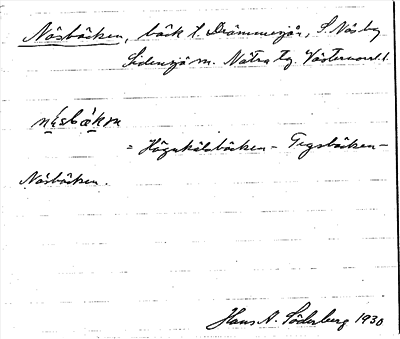 Näsbäcken, bäck t. Drömmesjön, S. Näsby
Sidensjö sn. Nätra tg. Västernorrl. l.
nésbäkɳ
= Högnkälsbäcken - Tegsbäcken -
Näsbäcken.
Hans A. Söderberg 1930